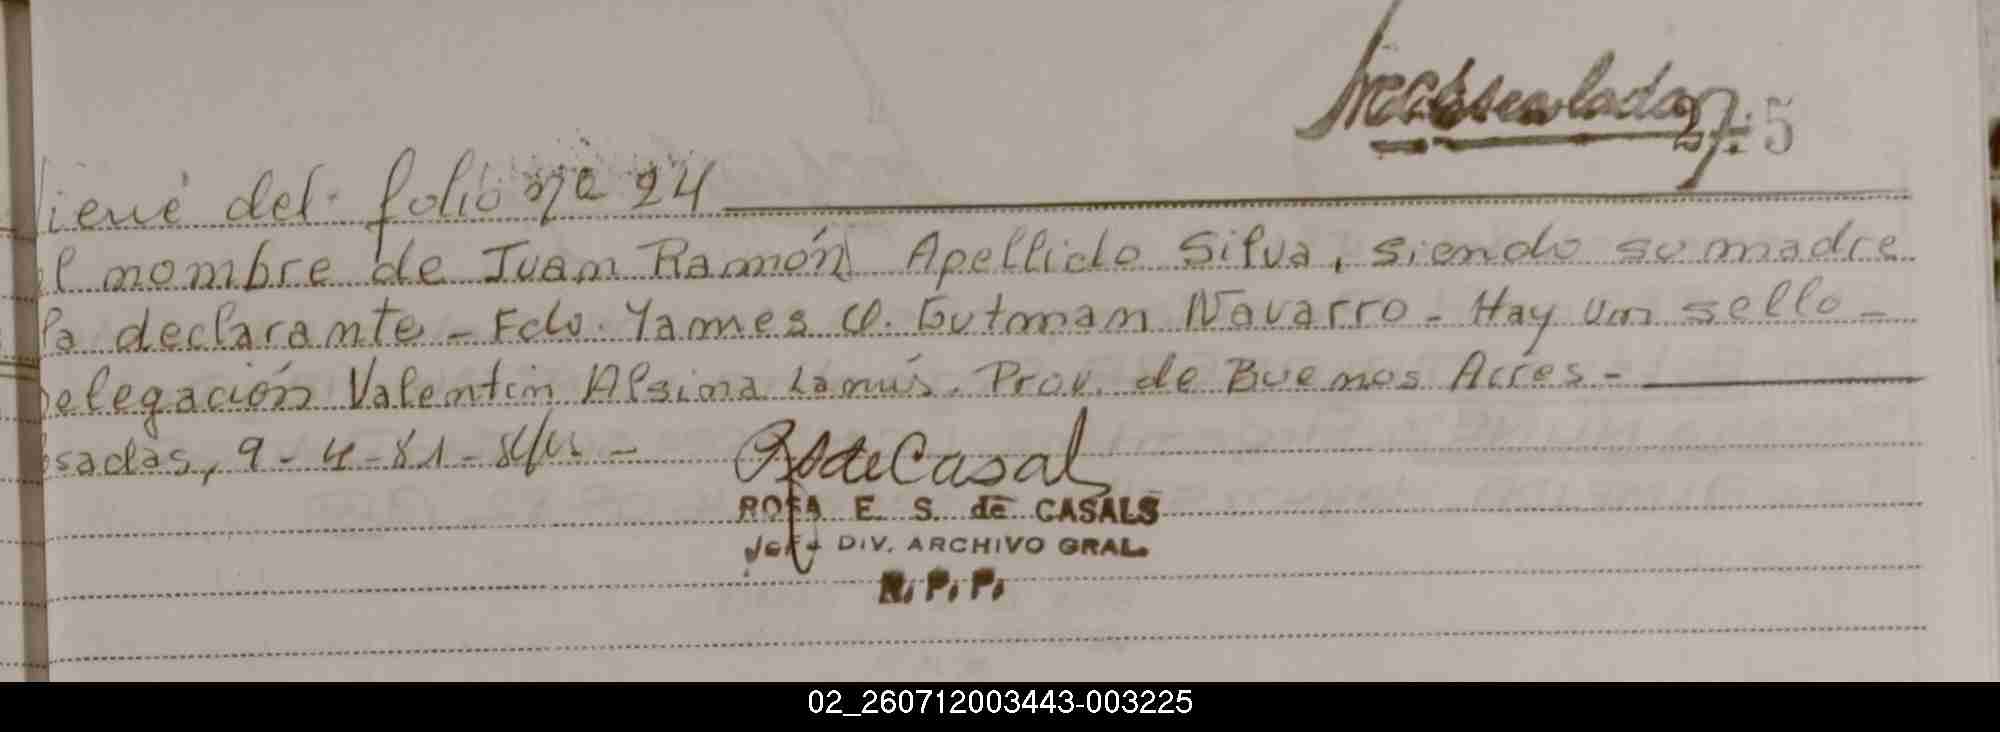 25
iene del folio nº 24
el nombre de Juan Ramón Apellido Silva, siendo su madre
la declarante - Fdo. Yames O. Gutman Navarro - Hay un sello -
elegación Valentin Alsina Lanús. Prov. de Buenos Aires -
sadas, 9-4-81-
RSdeCasal
ROSA E. S. de CASALS
Jefa DIV. ARCHIVO GRAL.
R. P. P.
02_260712003443-003225